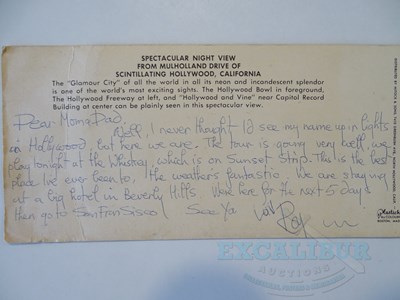 SPECTACULAR NIGHT VIEW
FROM MULHOLLAND DRIVE OF
SCINTILLATING HOLLYWOOD, CALIFORNIA
The "Glamour City" of all the world in all its neon and incandescent splendor
is one of the world's most exciting sights. The Hollywood Bowl in foreground,
The Hollywood Freeway at left, and "Hollywood and Vine" near Capitol Record
Building at center can be plainly seen in this spectacular view.
Dear Mom & Dad,
Well, I never thought I'd see my name up in lights
in Hollywood, but here we are. The tour is going very well, we
play tonight at the Whiskey, which is on Sunset Strip. This is the best
place Ive ever been to, the weather's fantastic. We are staying
at a big hotel in Beverly Hills. Were here for the next 5 days
then go to San Fran Sisco! See Ya
EXCALIBUR
AUCTIONS